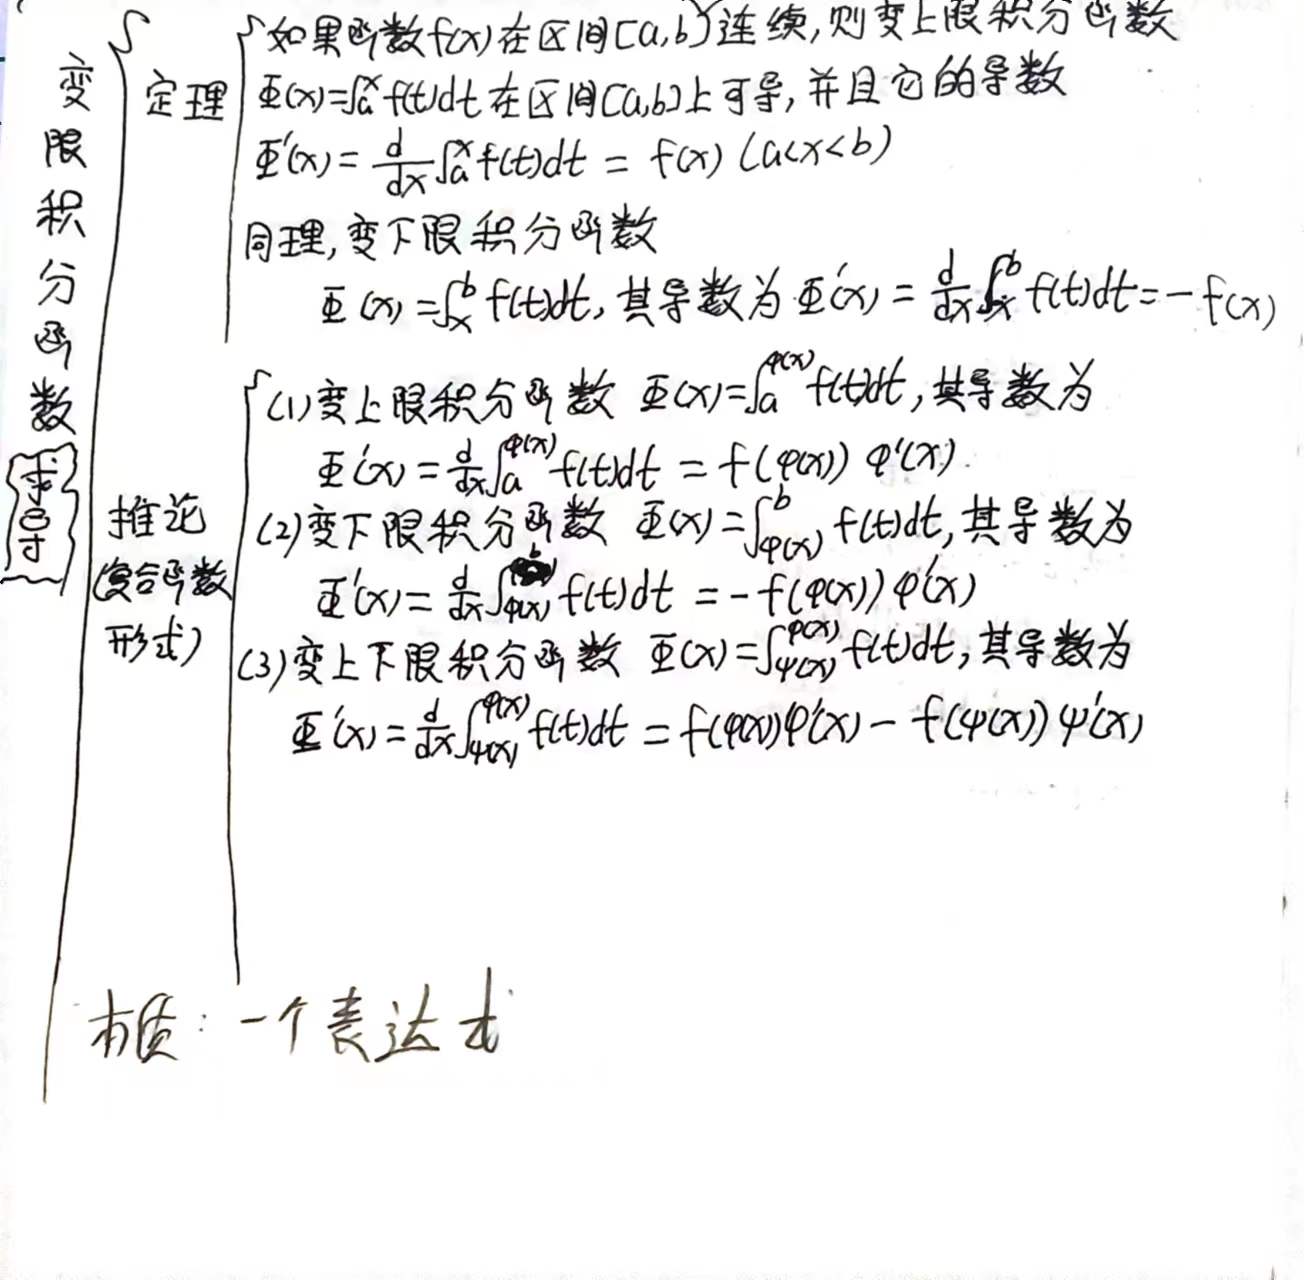 变限积分函数
求导
定理
如果函数f(x)在区间[a,b]连续,则变上限积分函数
Φ(x)=∫ₐˣf(t)dt在区间[a,b]上可导,并且它的导数
Φ'(x)=d/dx∫ₐˣf(t)dt=f(x) (a<x<b)
同理,变下限积分函数
Φ(x)=∫ₓᵇf(t)dt,其导数为Φ'(x)=d/dx∫ₓᵇf(t)dt=-f(x)
推论
(复合函数
形式)
(1)变上限积分函数 Φ(x)=∫_a^{φ(x)}f(t)dt,其导数为
Φ'(x)=d/dx∫_a^{φ(x)}f(t)dt=f(φ(x))φ'(x)
(2)变下限积分函数 Φ(x)=∫_{φ(x)}^b f(t)dt,其导数为
Φ'(x)=d/dx∫_{φ(x)}^b f(t)dt=-f(φ(x))φ'(x)
(3)变上下限积分函数 Φ(x)=∫_{ψ(x)}^{φ(x)}f(t)dt,其导数为
Φ'(x)=d/dx∫_{ψ(x)}^{φ(x)}f(t)dt=f(φ(x))φ'(x)-f(ψ(x))ψ'(x)
本质:一个表达式